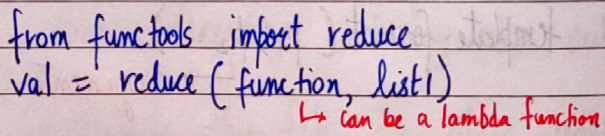 from functools import reduce
val = reduce (function, list1)
↳ can be a lambda function